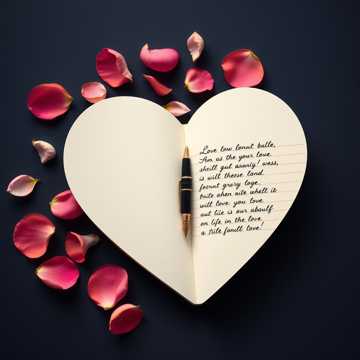 Love low lonut balle,
Am as the your love.
sheill gut auarly! wess,
is will these land.
foernt grary loge.
bute ahen aile whelt it
will love. you love.
out life is our absulf
on life in the love.
a stile fandt love!